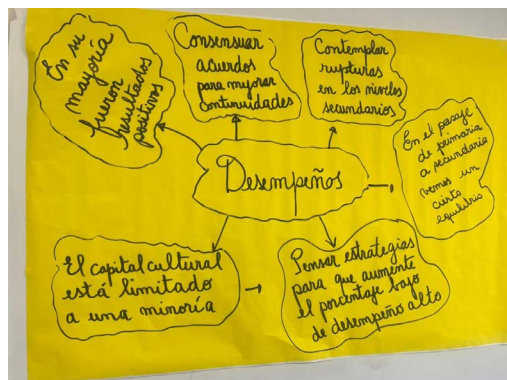 En su
mayoría
fueron
resultados
positivos
Consensuar
acuerdos
para mejorar
continuidades
Contemplar
rupturas
en los niveles
secundarios
En el pasaje
de primaria
a secundaria
vemos un
cierto
equilibrio
Desempeños
El capital cultural
está limitado
a una minoría
Pensar estrategias
para que aumente
el porcentaje bajo
de desempeño alto